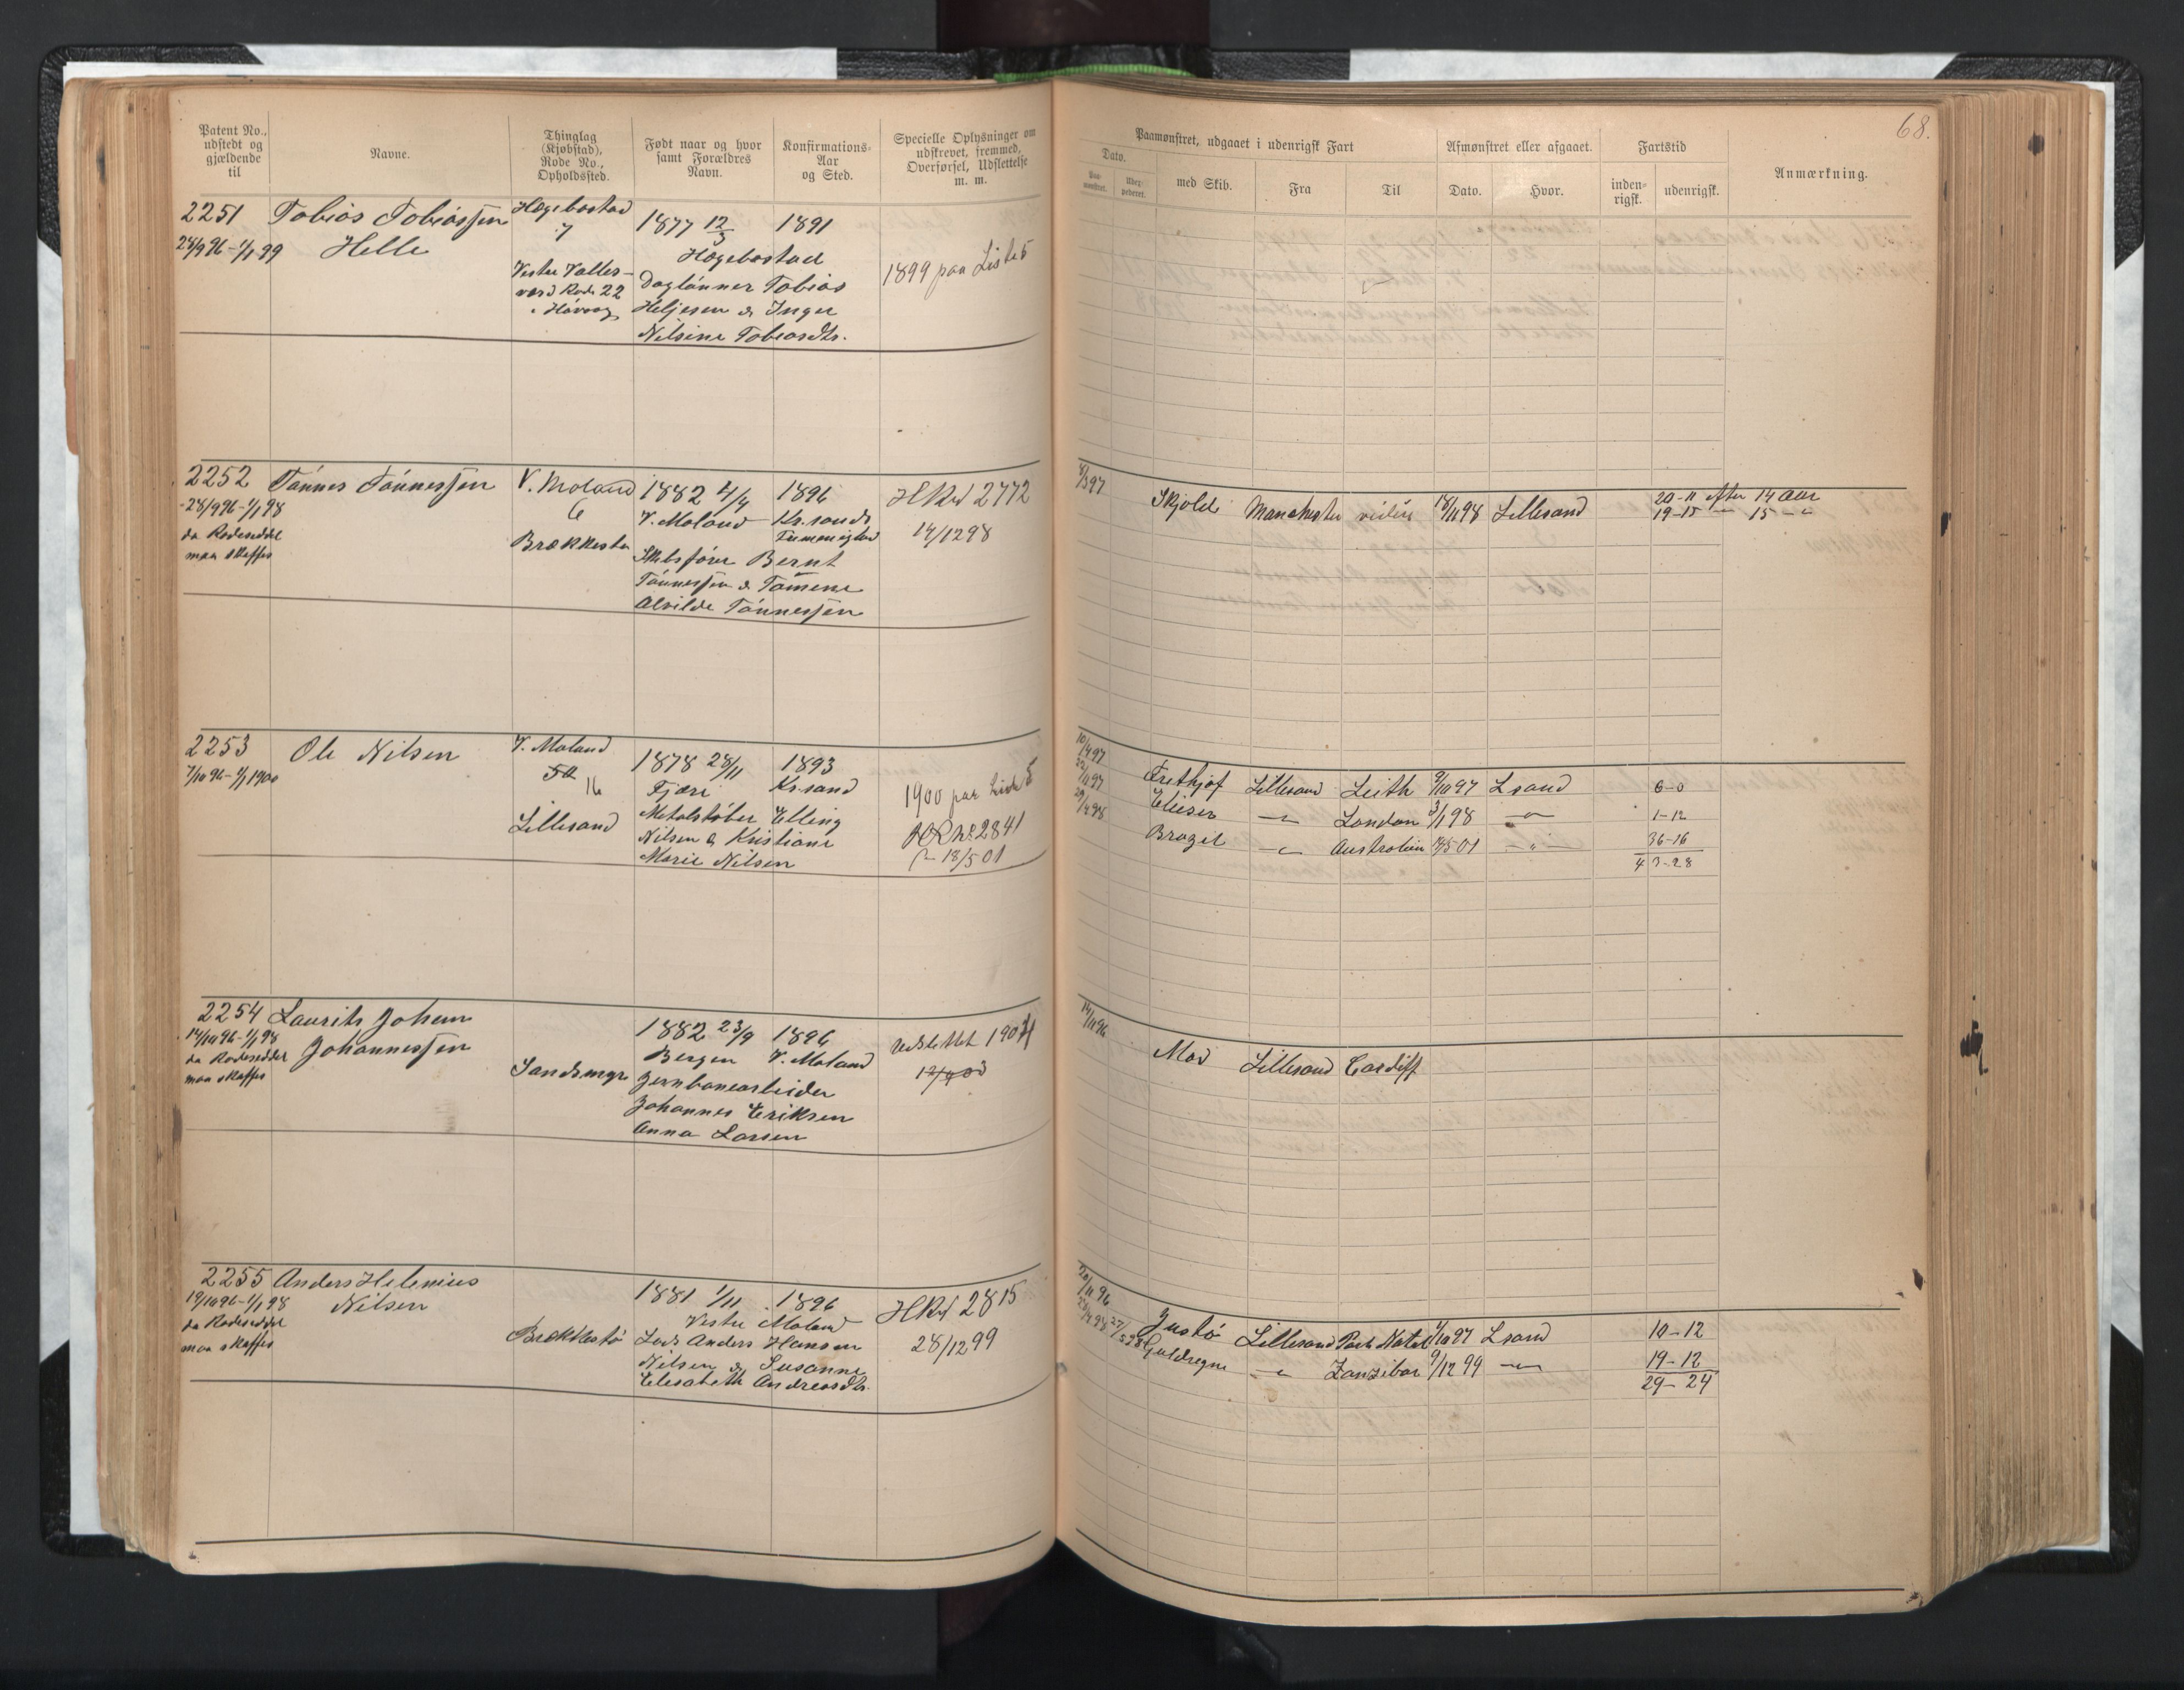 68.
Patent No., udstedt og gjældende til
Navne.
Thinglag (Kjøbstad), Rode No., Opholdssted.
Født naar og hvor samt Forældres Navn.
Konfirmations-Aar og Sted.
Specielle Oplysninger om udskrevet, fremmed, Overførsel, Udslettelse m. m.
Paamønstret, udgaaet i udenrigsk Fart
Afmønstret eller afgaaet.
Fartstid
Anmærkning.
Dato.
med Skib.
Fra
Til
Dato.
Hvor.
inden-rigsk.
udenrigsk.
2251
28/9 96 - 1/1 99
Tobias Tobiassen
Helle
Hægebostad
7
Vestre Valles-
værd Rode 22
Høvaag
1877 12/3 1891
Hægebostad
Daglønner Tobias
Heljesen & Inger
Nilsine Tobiasdtr.
1899 paa Liste 5
2252
28/9 96 - 1/1 98
da Rodeseddel
maa skaffes
Tønnes Tønnessen
V. Moland
6
Brækkestø
1882 4/4 1896
V. Moland Kr.sands
Skibsfører Bernt
Tønnessen &
Alvilde Tønnessen
HRul 2772
14/12 98
8/3 97
Skjold Manchester 18/11 98 Lillesand 20-11 efter 14 Aar
19-15 - 15 -"-
2253
7/10 96 - 1/1 1900
Ole Nilsen
V. Moland
16
Lillesand
1878 28/11 1893
Fjære Kr.sand
Metalstøber Elling
Nilsen & Kristiane
Marie Nilsen
1900 paa Liste 5
HR No 2841
18/5 01
10/4 97
22/11 97
29/4 98
Frethjof Lillesand Leith 9/10 97 L sand 6-0
Elieser -"- London 3/1 98 -"- 1-12
Brazil -"- Australien 14/5 01 -"- 36-16
43-28
2254
14/10 96 - 1/1 98
da Rodeseddel
maa skaffes
Laurits Johan
Johannessen
Sandsmyr
1882 23/9 1896
Bergen V. Moland
Jernbanearbeider
Johannes Eriksen
Anna Larsen
Udslettet 1904
14/11 96
Mod Lillesand Cardiff
2255
19/10 96 - 1/1 98
da Rodeseddel
maa skaffes
Anders Helenius
Nilsen
Brækkestø
1881 1/11 1896
Vestre Moland
Lods Anders Hansen
Nilsen & Susanne
Elisabeth Andreasdtr.
HRul 2815
28/12 99
20/11 96
28/4 98 27/5 98
Justø Lillesand Port Natal 1/10 97 L sand 10-12
Guldregn -"- Zanzibar 9/12 99 -"- 19-12
29-24